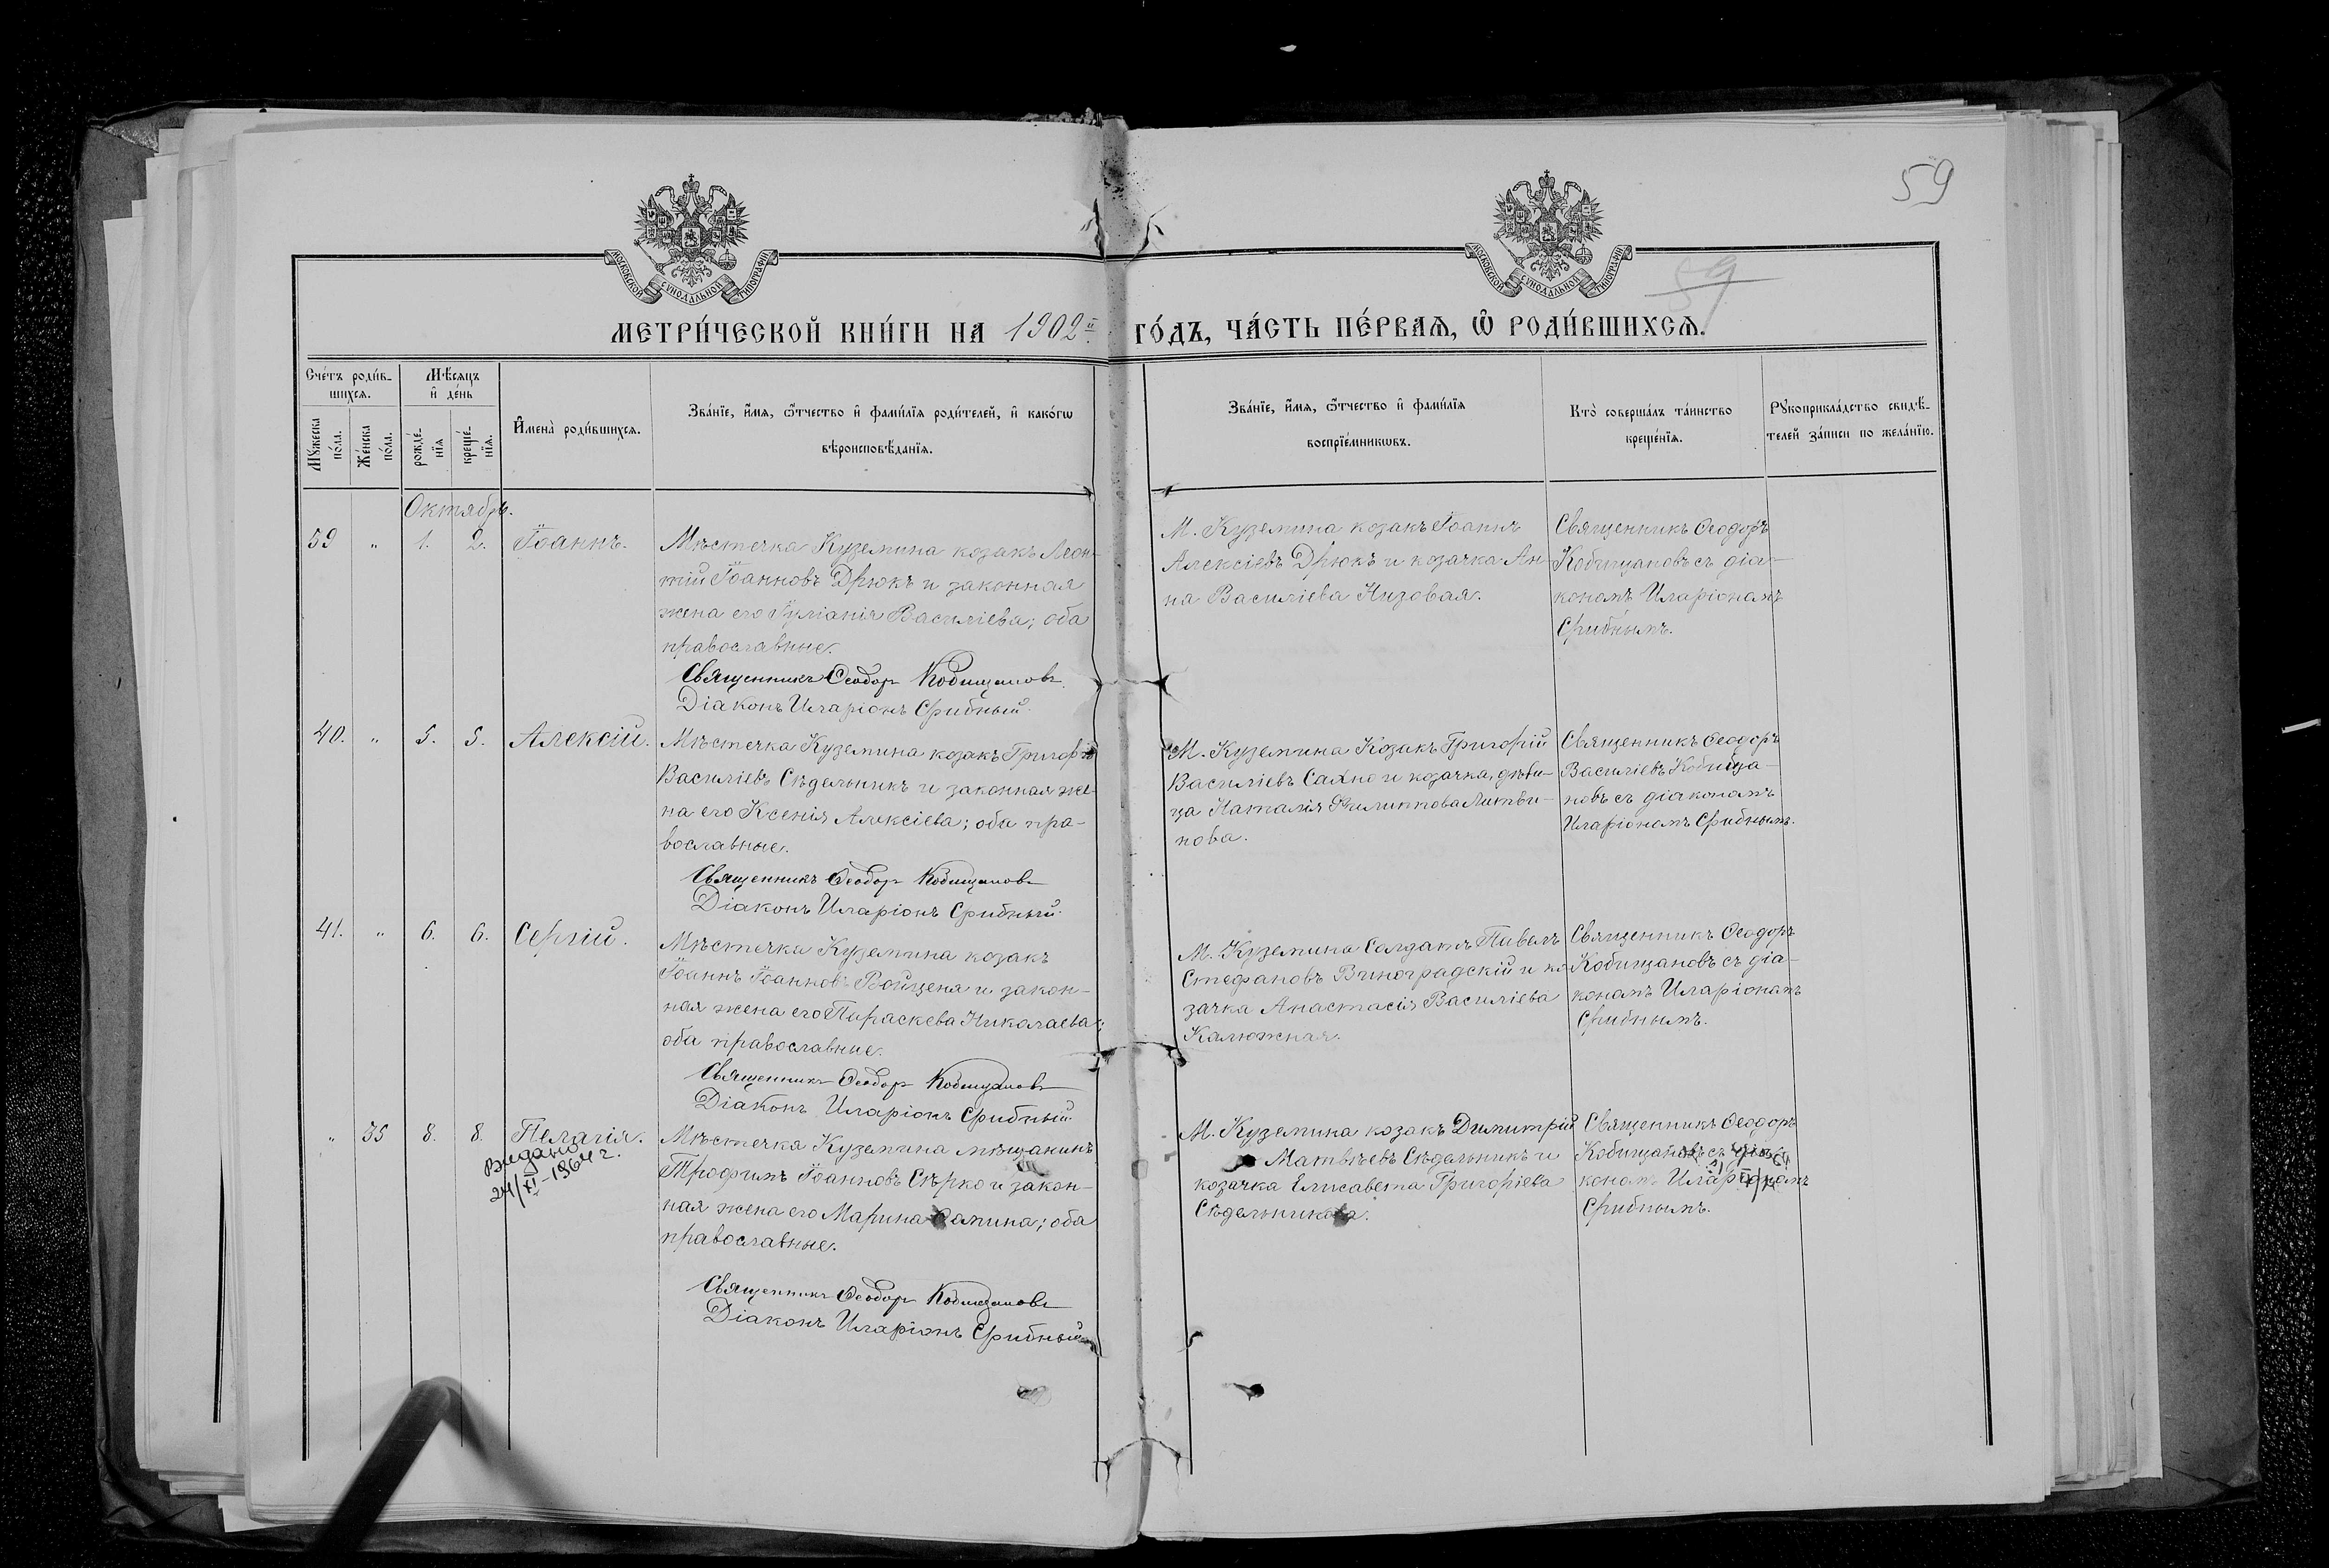 59
59
МОСКОВСКОЙ СѴНОДАЛЬНОЙ ТИПОГРАФІИ
МОСКОВСКОЙ СѴНОДАЛЬНОЙ ТИПОГРАФІИ
МЕТРИ́ЧЕСКОЙ КНИ́ГИ НА 1902й ГО́ДЪ, ЧА́СТЬ ПЕ́РВАѦ, Ѡ҆ РОДИ́ВШИХСѦ.
Сче́тъ роди́в-
шихсѧ.
Мꙋ́жеска
по́ла.
Же́нска
по́ла.
Мѣ́сѧцъ
и҆ де́нь
рожде́-
нїѧ
креще́-
нїѧ.
И҆мена̀ роди́вшихсѧ.
Зва́нїе, и҆́мѧ, ѻ҆́тчество и҆ фами́лїѧ роди́телей, и҆ како́гѡ
вѣроисповѣ́данїѧ.
Зва́нїе, и҆́мѧ, ѻ҆́тчество и҆ фами́лїѧ
воспрїе́мникѡвъ.
Кто̀ соверша́лъ та́инство
креще́нїѧ.
Рꙋкоприкла́дство свидѣ́-
телей за́писи по жела́нїю.
Октябрь.
39 " 1. 2. Іоаннъ.
Мѣстечка Куземина козакъ Леон-
тій Іоанновъ Дрюкъ и законная
жена его Іуліанія Василіева; оба
православные.
Священникъ Ѳеодоръ Кобищановъ
Діаконъ Иларіонъ Срибный.
М. Куземина козакъ Іоаннъ
Алексіевъ Дрюкъ и козачка Ан-
на Василіева Низовая.
Священникъ Ѳеодоръ
Кобищановъ съ діа-
кономъ Иларіономъ
Срибнымъ.
40. " 5. 5. Алексій.
Мѣстечка Куземина козакъ Григорій
Василіевъ Сѣдельникъ и законная же-
на его Ксенія Алексіева; оба пра-
вославные.
Священникъ Ѳеодоръ Кобищановъ
Діаконъ Иларіонъ Срибный.
М. Куземина Козакъ Григорій
Василіевъ Сахно и козачка, дѣви-
ца Наталія Филиппова Литви-
нова.
Священникъ Ѳеодоръ
Василіевъ Кобища-
новъ съ діакономъ
Иларіономъ Срибнымъ.
41. " 6. 6. Сергій.
Мѣстечка Куземина козакъ
Іоаннъ Іоанновъ Войщена и закон-
ная жена его Параскева Николаева;
оба православные.
Священникъ Ѳеодоръ Кобищановъ
Діаконъ Иларіонъ Срибный
М. Куземина Солдатъ Павелъ
Стефановъ Виноградскій и ко-
зачка Анастасія Василіева
Калюжная.
Священникъ Ѳеодоръ
Кобищановъ съ діа-
кономъ Иларіономъ
Срибнымъ.
" 35 8. 8. Пелагія.
Видано
24/XI-1964 г.
Мѣстечка Куземина мѣщанинъ
Трофимъ Іоанновъ Сѣрко и закон-
ная жена его Марина Ѳомина; оба
православные.
Священникъ Ѳеодоръ Кобищановъ
Діаконъ Иларіонъ Срибный
М. Куземина козакъ Димитрій
Матвѣевъ Сѣдельникъ и
козачка Елисавета Григоріева
Сѣдельникова.
Священникъ Ѳеодоръ
Кобищановъ съ діа-
кономъ Иларіономъ
Срибнымъ.